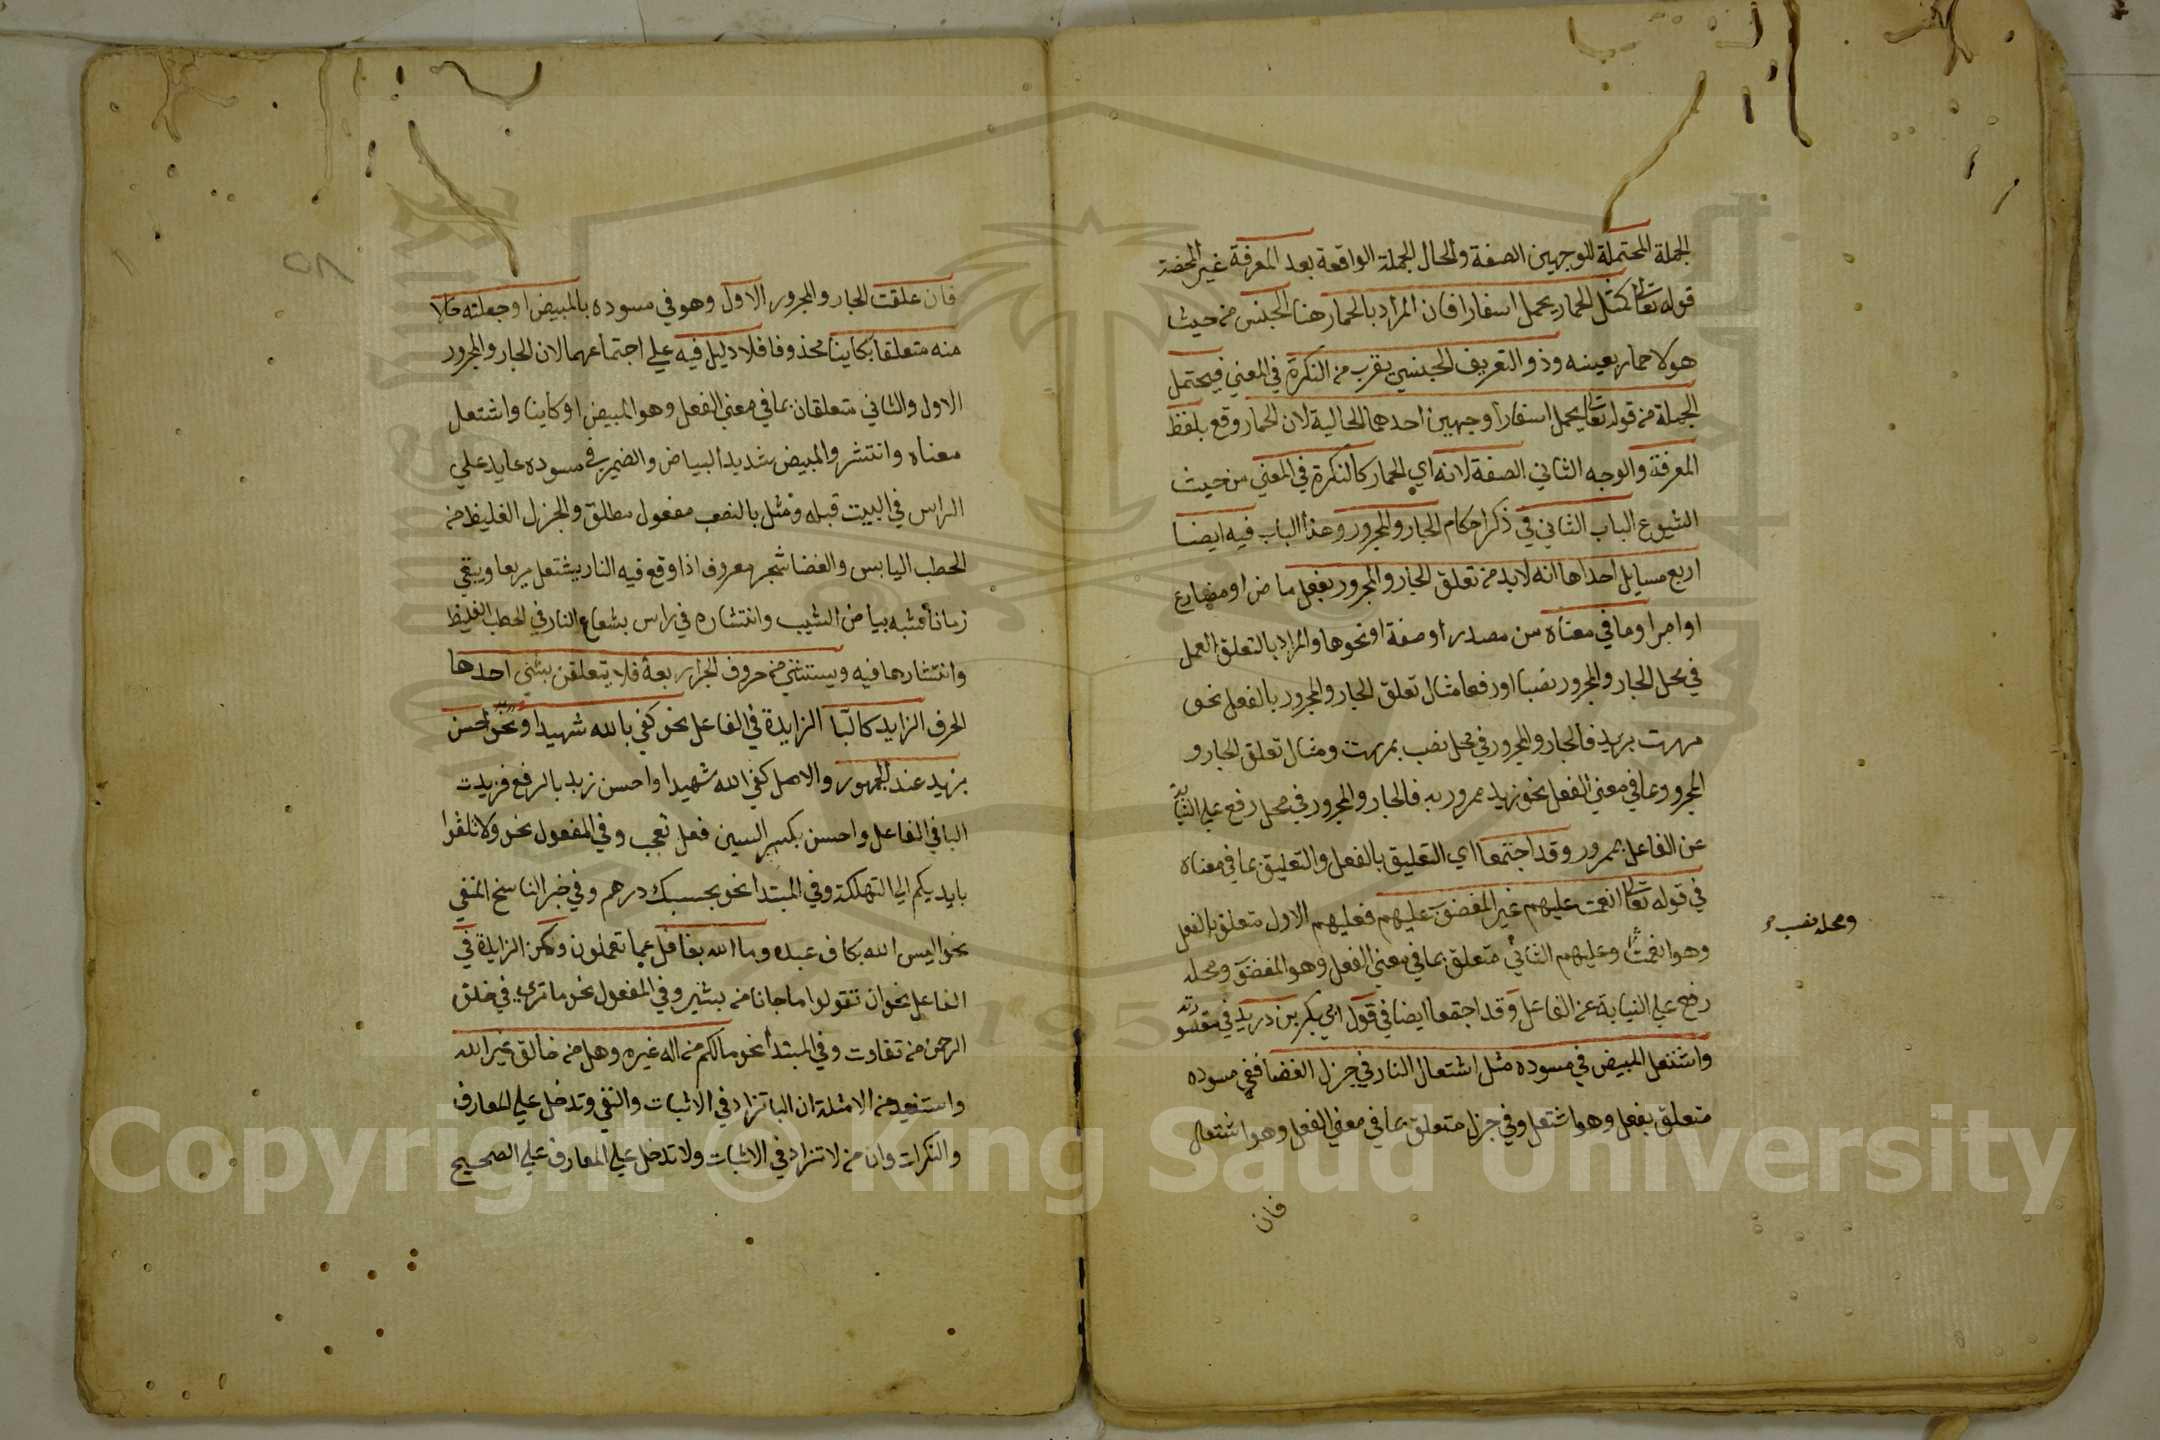 الجملة المحتملة للوجهين الصفة والحال الجملة الواقعة بعد المعرفة غير المحضة
قوله تعالى كمثل الحمار يحمل اسفارا فان المراد بالحمار هنا الجنس من حيث
هو لا حمار بعينه وذو التعريف الجنسي يقرب من النكرة في المعني فيحتمل
الجملة من قوله تعالى يحمل اسفارا وجهين احدهما الحالية لان الحمار وقع بلفظ
المعرفة والوجه الثاني الصفة لانه اي الحمار كالنكرة في المعني من حيث
الشيوع الباب الثاني في ذكر احكام الجار والمجرور وهذا الباب فيه ايضا
اربع مسايل احداها انه لابد من تعلق الجار والمجرور بفعل ماض او مضارع
او امر او ما في معناه من مصدر او صفة او نحوها والمراد بالتعلق العمل
في محل الجار والمجرور نصبا او رفعا مثال تعلق الجار والمجرور بالفعل نحو
مررت بزيد فالجار والمجرور في محل نصب بمررت ومثال تعلق الجار و
المجرور بما في معني الفعل نحو زيد ممرور به فالجار والمجرور في محل رفع علي النيابة
عن الفاعل بممرور وقد اجتمعا اي التعليق بالفعل والتعليق بما في معناه
في قوله تعالى انعمت عليهم غير المغضوب عليهم فعليهم الاول متعلق بالفعل
وهو انعمت وعليهم الثاني متعلق بما في معني الفعل وهو المغضوب ومحله
ومحله نصب
رفع علي النيابة عن الفاعل وقد اجتمعا ايضا في قول ابي بكر بن دريد في مقصورته
واشتعل المبيض في مسوده مثل اشتعال النار في جزل الغضا ففي مسوده
متعلق بفعل وهو اشتعل وفي جزل متعلق بما في معني الفعل وهو اشتعال
فان
٥٨
فان علقت الجار والمجرور الاول وهو في مسوده بالمبيض او جعلته حالا
منه متعلقا بكاينا محذوفا فلا دليل فيه علي اجتماعهما لان الجار والمجرور
الاول والثاني متعلقان بما في معني الفعل وهو المبيض او كاينا واشتعل
معناه وانتشر والمبيض شديد البياض والضمير في مسوده عايد علي
الراس في البيت قبله ومثل بالنصب مفعول مطلق والجزل الغليظ من
الحطب اليابس والغضا شجر معروف اذا وقع فيه النار يشتعل سريعا ويبقي
زمانا فشبه بياض الشيب وانتشاره في راس بشعاع النار في الحطب الغليظ
وانتشارها فيه ويستثني من حروف الجر اربعة فلا يتعلقن بشي احدها
الحرف الزايد كالبا الزايدة في الفاعل نحو كفي بالله شهيدا ونحو احسن
بزيد عند الجمهور والاصل كفي الله شهيدا واحسن زيد بالرفع فزيدت
البا في الفاعل واحسن بكسر السين فعل تعجب وفي المفعول نحو ولا تلقوا
بايديكم الي التهلكة وفي المبتدا نحو بحسبك درهم وفي خبر الناسخ المنفي
نحو اليس الله بكاف عبده وما الله بغافل عما تعملون وكمن الزايدة في
الفاعل نحو ان تقولوا ما جانا من بشير وفي المفعول نحو ما تري في خلق
الرحمن من تفاوت وفي المبتدا نحو مالكم من اله غيره وهل من خالق غير الله
واستفيد من الامثلة ان البا تزاد في الاثبات والنفي وتدخل علي المعارف
والنكرات وان من لا تزاد في الاثبات ولا تدخل علي المعارف علي الصحيح
Copyright © King Saud University